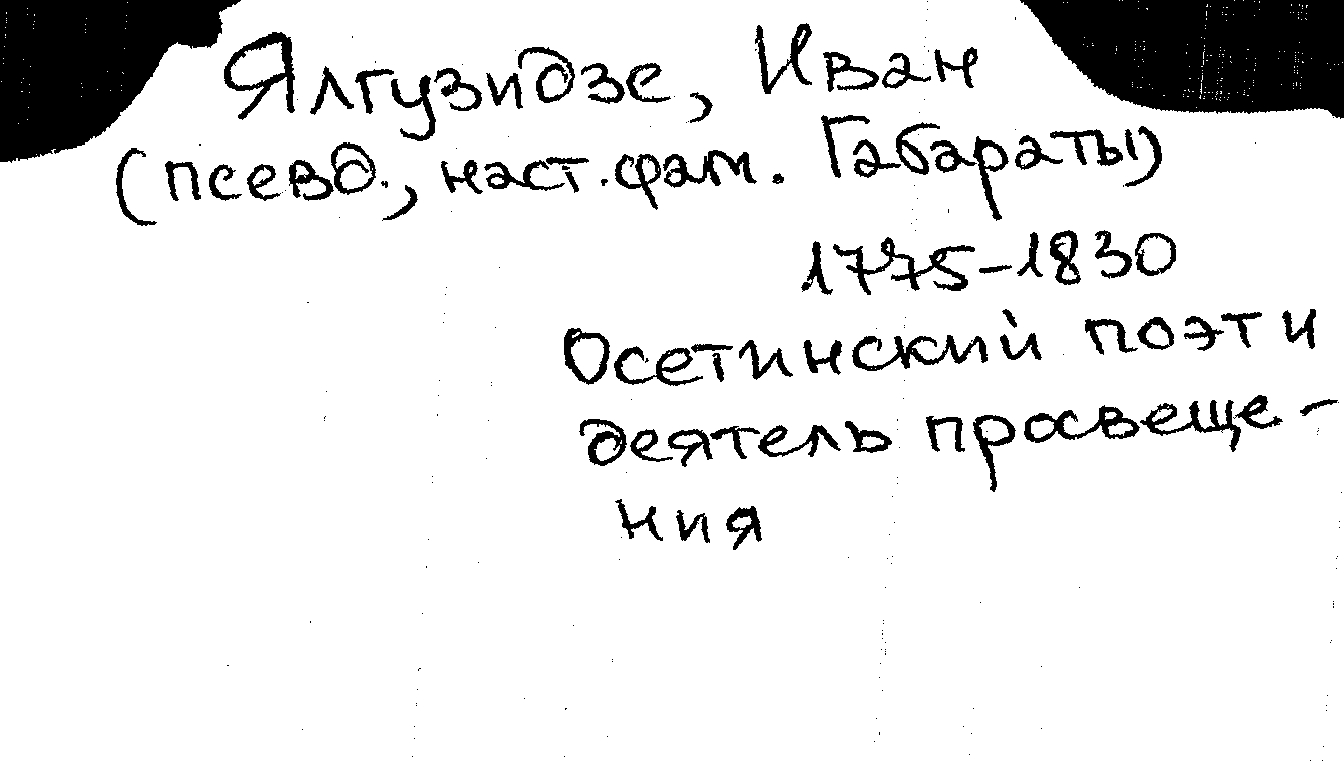 Ялгузидзе, Иван
(псевд., наст. фам. Габараты)
1775-1830
Осетинский поэт и
деятель просвеще-
ния